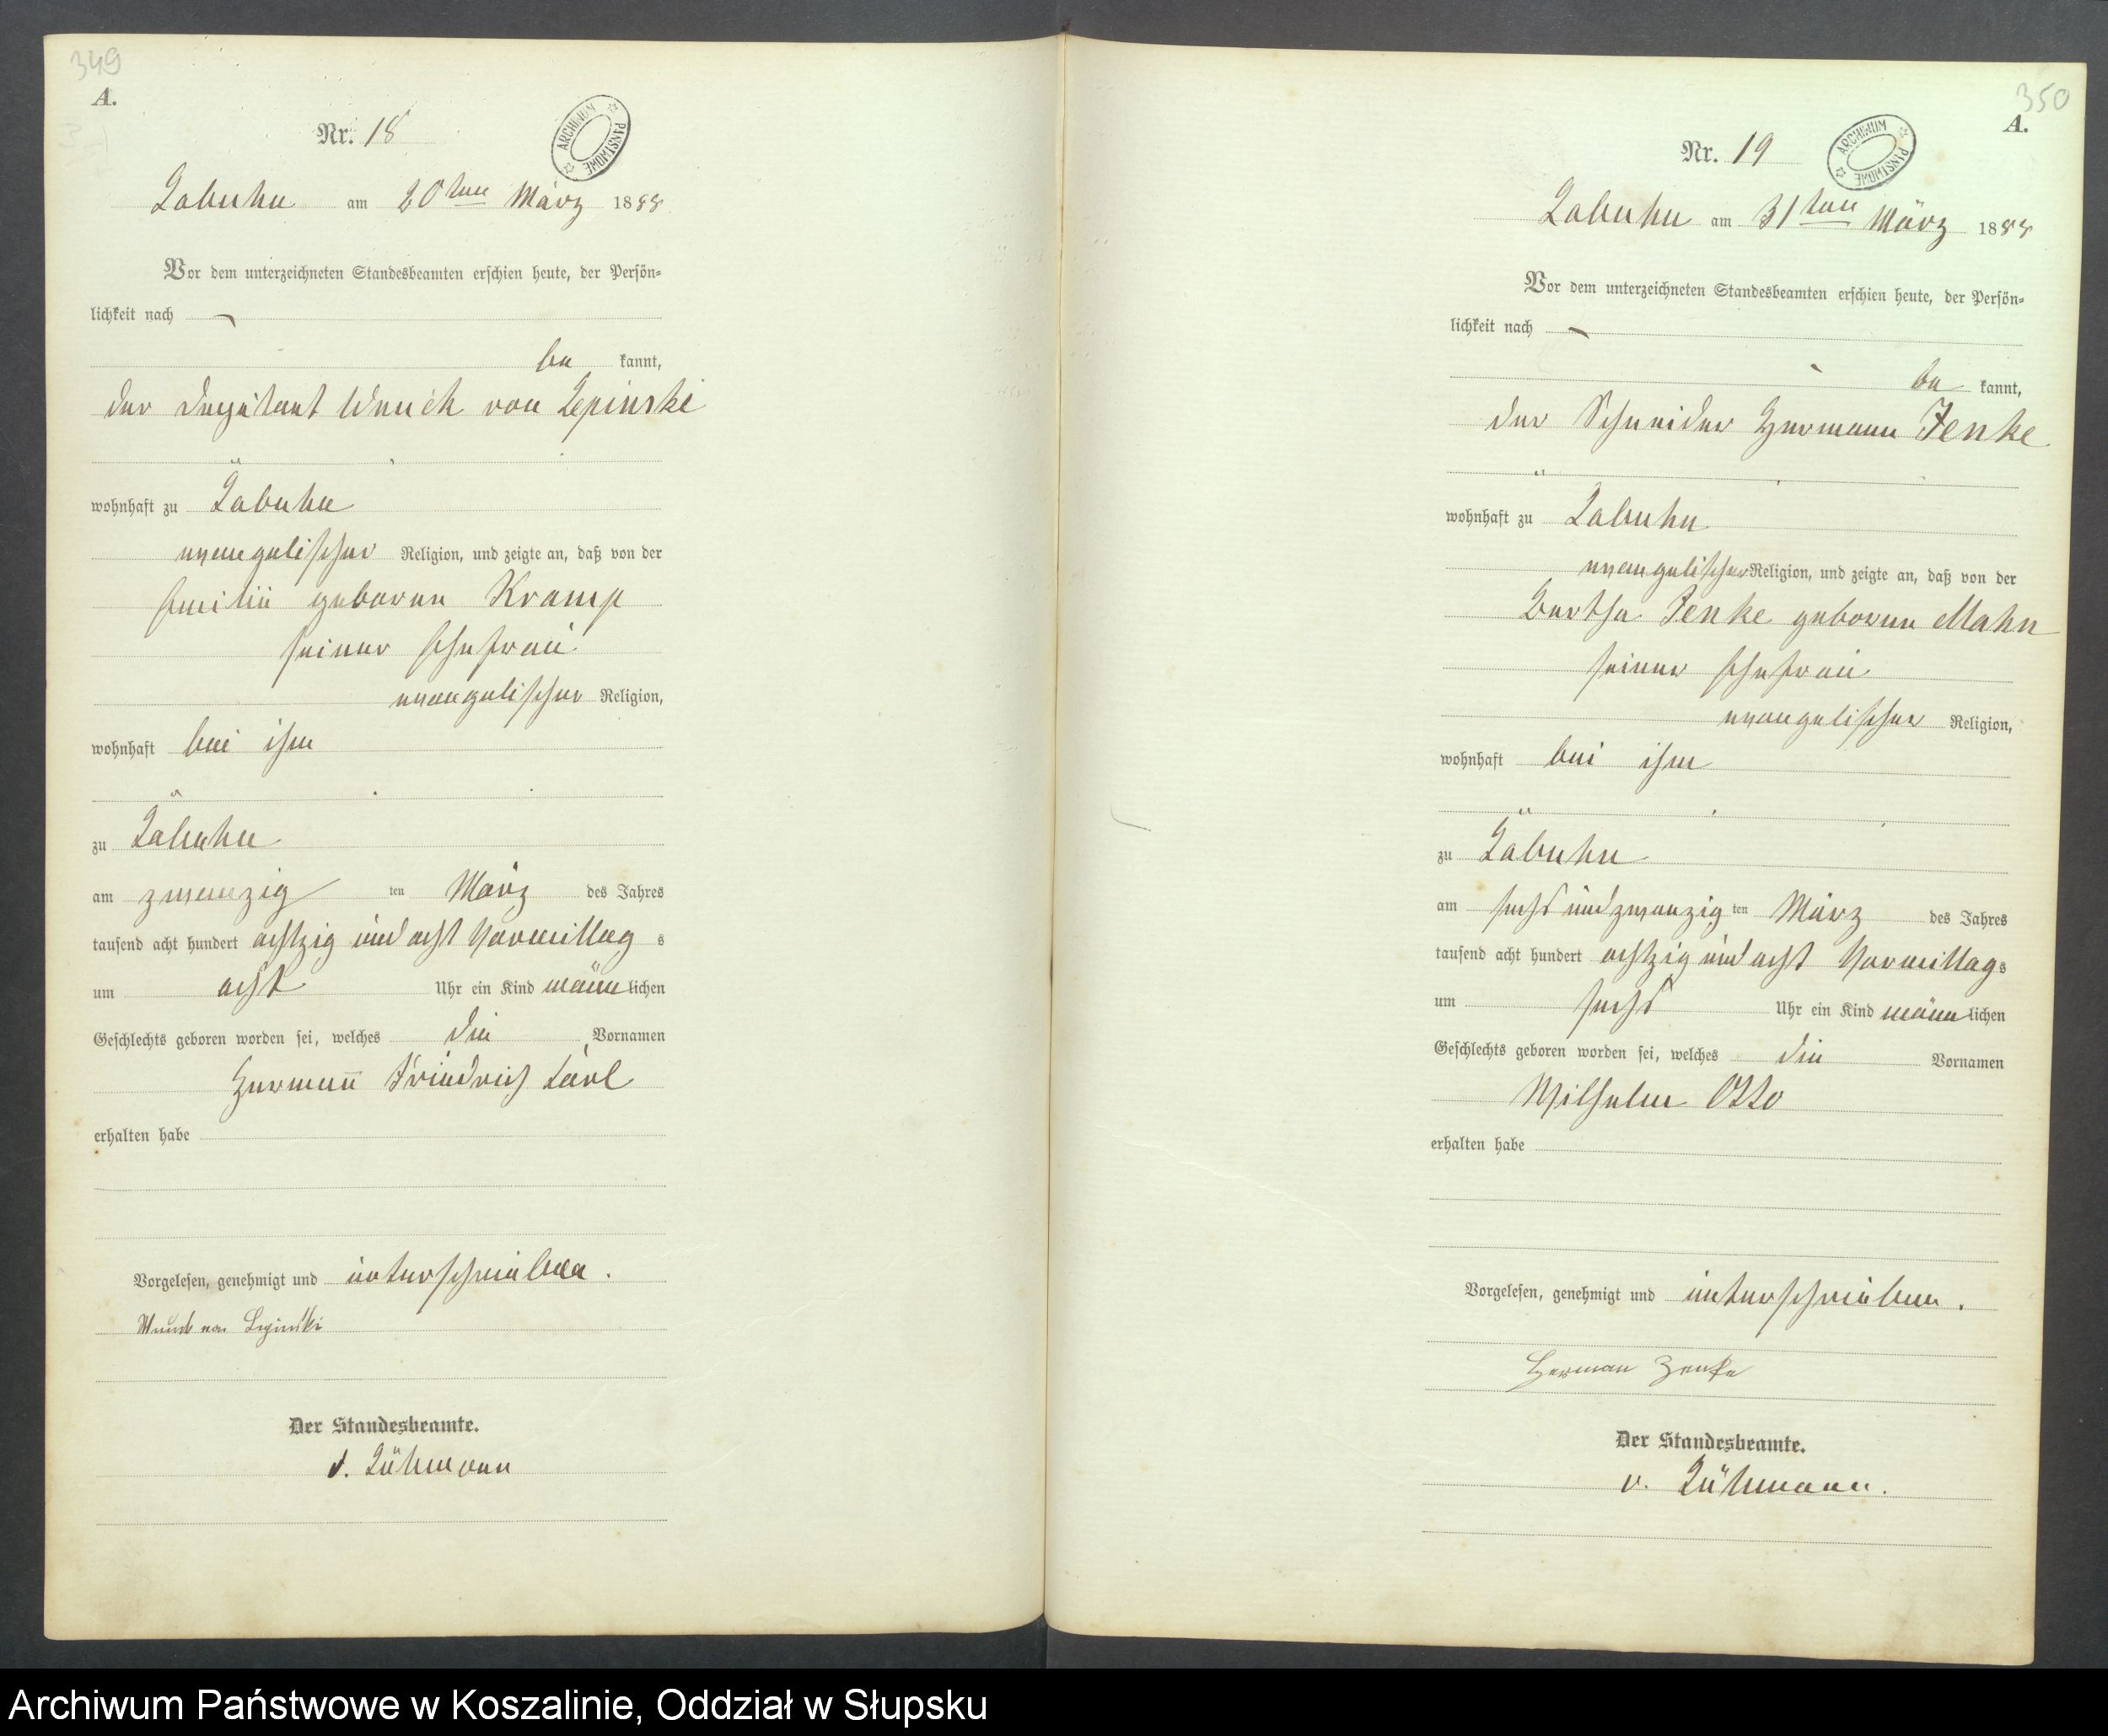 349
A.
Nr. 18
ARCHIWUM PAŃSTWOWE
Labuhn am 20ten März 1888
Vor dem unterzeichneten Standesbeamten erschien heute, der Persön-
lichkeit nach
be kannt,
der Deputant von Lepinski
wohnhaft zu Labuhn
evangelischer Religion, und zeigte an, daß von der
Emilie geborene Kramp
seiner Ehefrau
evangelischer Religion,
wohnhaft bei ihm
zu Labuhn
am zwanzig ten März des Jahres
tausend acht hundert achtzig und acht Vormittag s
um acht Uhr ein Kind männ lichen
Geschlechts geboren worden sei, welches die Vornamen
Hermann Friedrich Carl
erhalten habe
Vorgelesen, genehmigt und unterschrieben.
von Lepinski
Der Standesbeamte.
v. Lühmann
350
A.
Nr. 19
ARCHIWUM PAŃSTWOWE
Labuhn am 31ten März 1888
Vor dem unterzeichneten Standesbeamten erschien heute, der Persön-
lichkeit nach
be kannt,
der Schneider Hermann Zenke
wohnhaft zu Labuhn
evangelischer Religion, und zeigte an, daß von der
Bertha Zenke geborene Mahn
seiner Ehefrau
evangelischer Religion,
wohnhaft bei ihm
zu Labuhn
am sechs und zwanzig ten März des Jahres
tausend acht hundert achtzig und acht Vormittag s
um sechs Uhr ein Kind männ lichen
Geschlechts geboren worden sei, welches die Vornamen
Wilhelm Otto
erhalten habe
Vorgelesen, genehmigt und unterschrieben.
Herman Zenke
Der Standesbeamte.
v. Lühmann.
Archiwum Państwowe w Koszalinie, Oddział w Słupsku